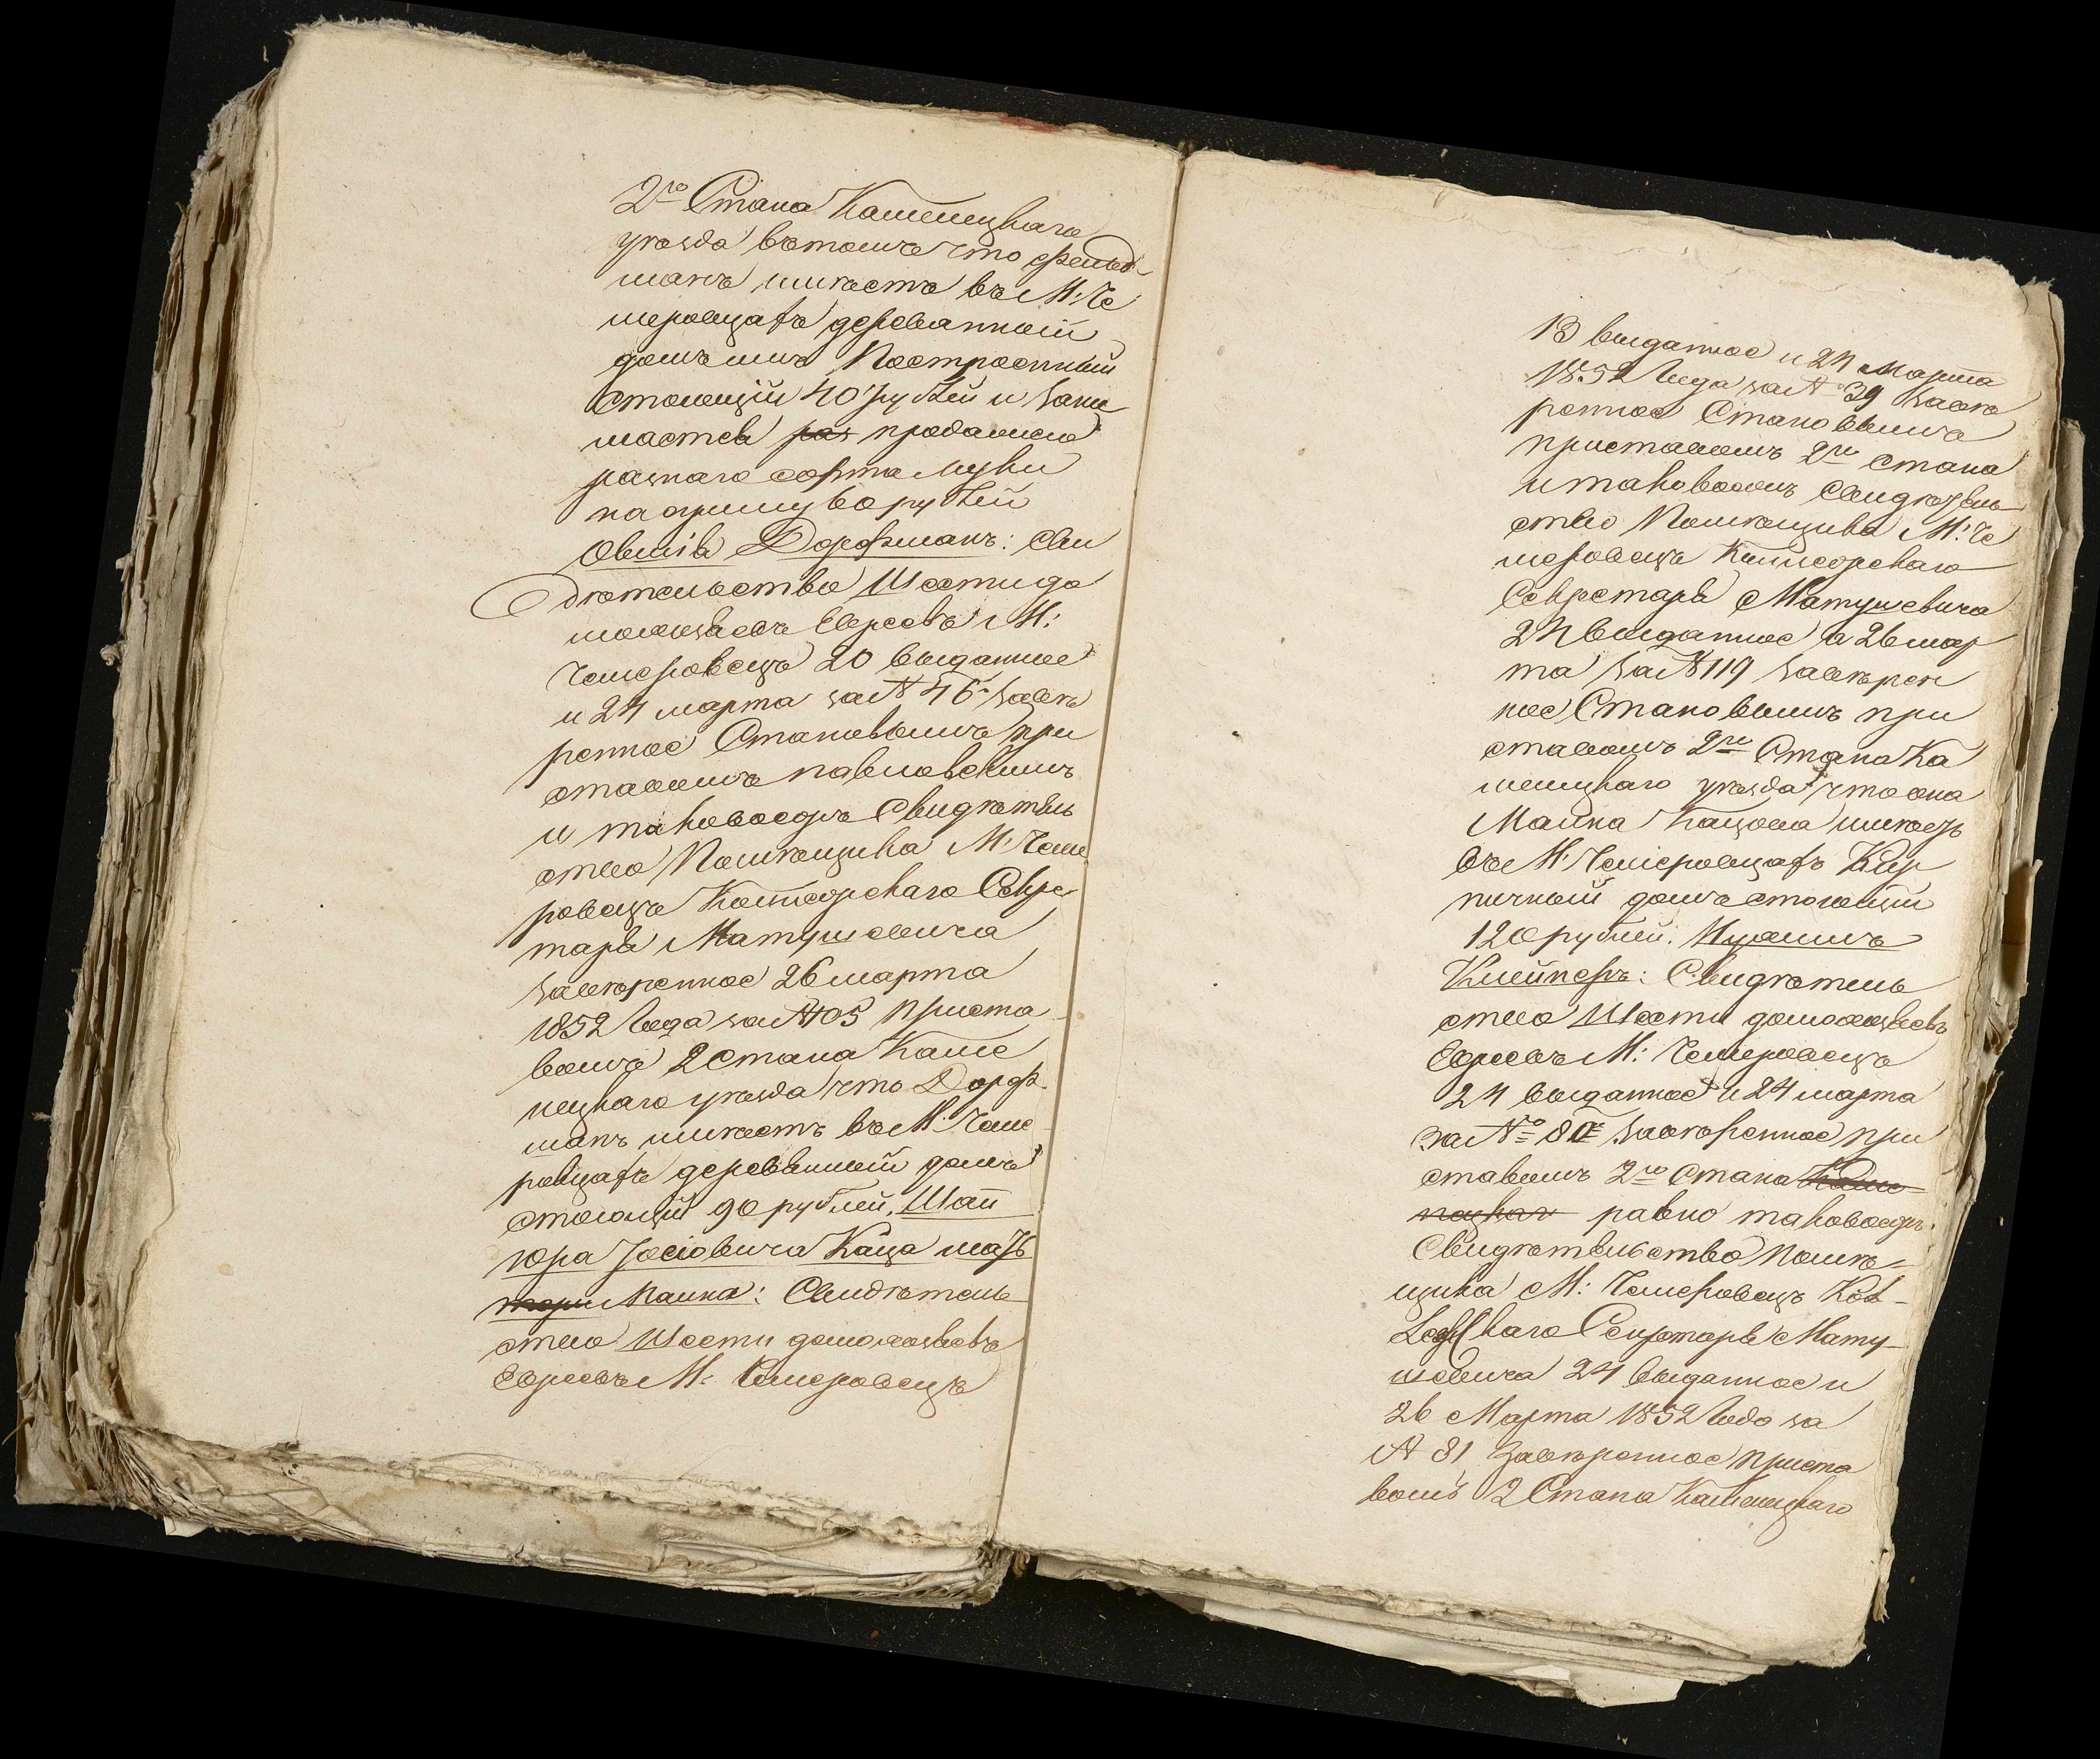 2го Стана Каменецкаго
уѣзда вътомъ что Фельд-
манъ имѣетъ въ М: Че
меровцахъ деревянный
домъ имъ Построенный
Стоющій 40 рублей и зани
мается раз продажею
разнаго сорта муки
на сумму 60 рублей
Овшія Дорфманъ: Сви
дѣтельство Шестида
мохозяевъ Евреевъ М:
Чемеровецъ 20 выданное
и 24 марта за № 46 завѣ
ренное Становымъ при
ставомъ павловскимъ
и таковоежъ Свидѣтель
ство Помѣщика М. Чеме
ровецъ Коллежскаго Секре
таря Матушевича
завѣренное 26 марта
1852 года за № 105 Приста
вомъ 2 стана Каме
нецкаго уѣзда что Дорф-
манъ имѣетъ въ М. Чеме
ровцахъ деревянный домъ
стоющій 90 рублей. Шап
Юра Іосіовича Каца мать
тери Маика: Свидѣтель
ство Шести домохозяевъ
Евреевъ М: Чемеровецъ
13 выданное и 24 Марта
1852 года за № 39 завѣ
ренное Становымъ
приставомъ 2го стана
и таковоежъ Свидѣтель
ство Помѣщика М: Че
меровецъ Коллежскаго
Секретаря Матушевича
24 выданное а 26 мар
та за № 119 завѣрен
ное Становымъ при
ставомъ 2го Стана Ка
менецкаго уѣзда что она
Маика Кацова имѣетъ
въ М. Чемеровцахъ Кир
пичный домъ стоющій
120 рублей. Нухимъ
Клейнеръ: Свидѣтель
ство Шести домохозяевъ
Евреевъ М: Чемеровецъ
24 выданное и 24 марта
за № 80 завѣренное при
ставомъ 2го стана Каме
нецкаг равно таковоежъ
Свидѣтельство Помѣ-
щика М: Чемеровецъ Кол-
Лежскаго Секретаря Мату-
шевича 24 выданное и
26 Марта 1852 года за
№ 81 завѣренное Приста
вомъ 2 Стана Каменецкаго